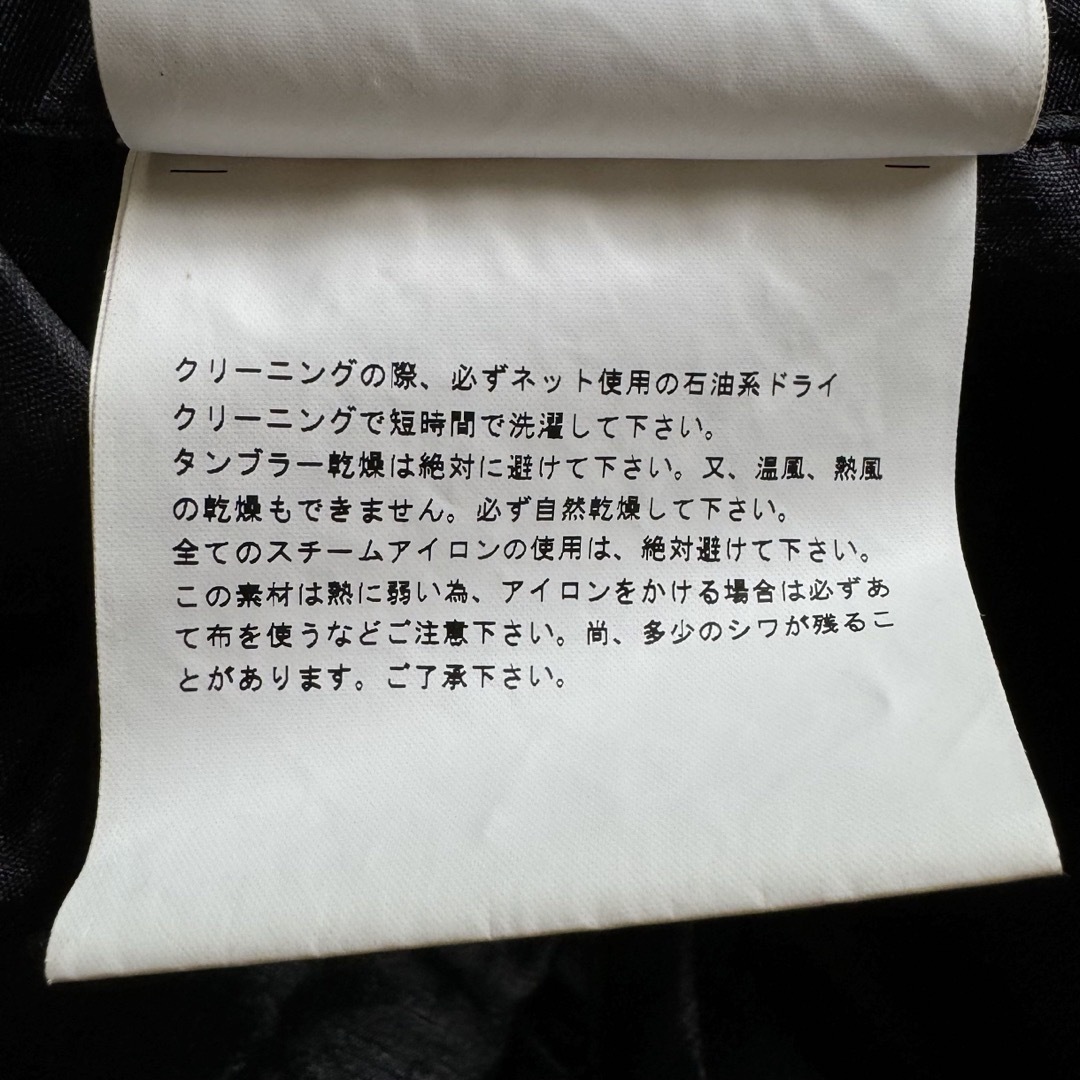 クリーニングの際、必ずネット使用の石油系ドライ
クリーニングで短時間で洗濯して下さい。
タンブラー乾燥は絶対に避けて下さい。又、温風、熱風
の乾燥もできません。必ず自然乾燥して下さい。
全てのスチームアイロンの使用は、絶対避けて下さい。
この素材は熱に弱い為、アイロンをかける場合は必ずあ
て布を使うなどご注意下さい。尚、多少のシワが残るこ
とがあります。ご了承下さい。